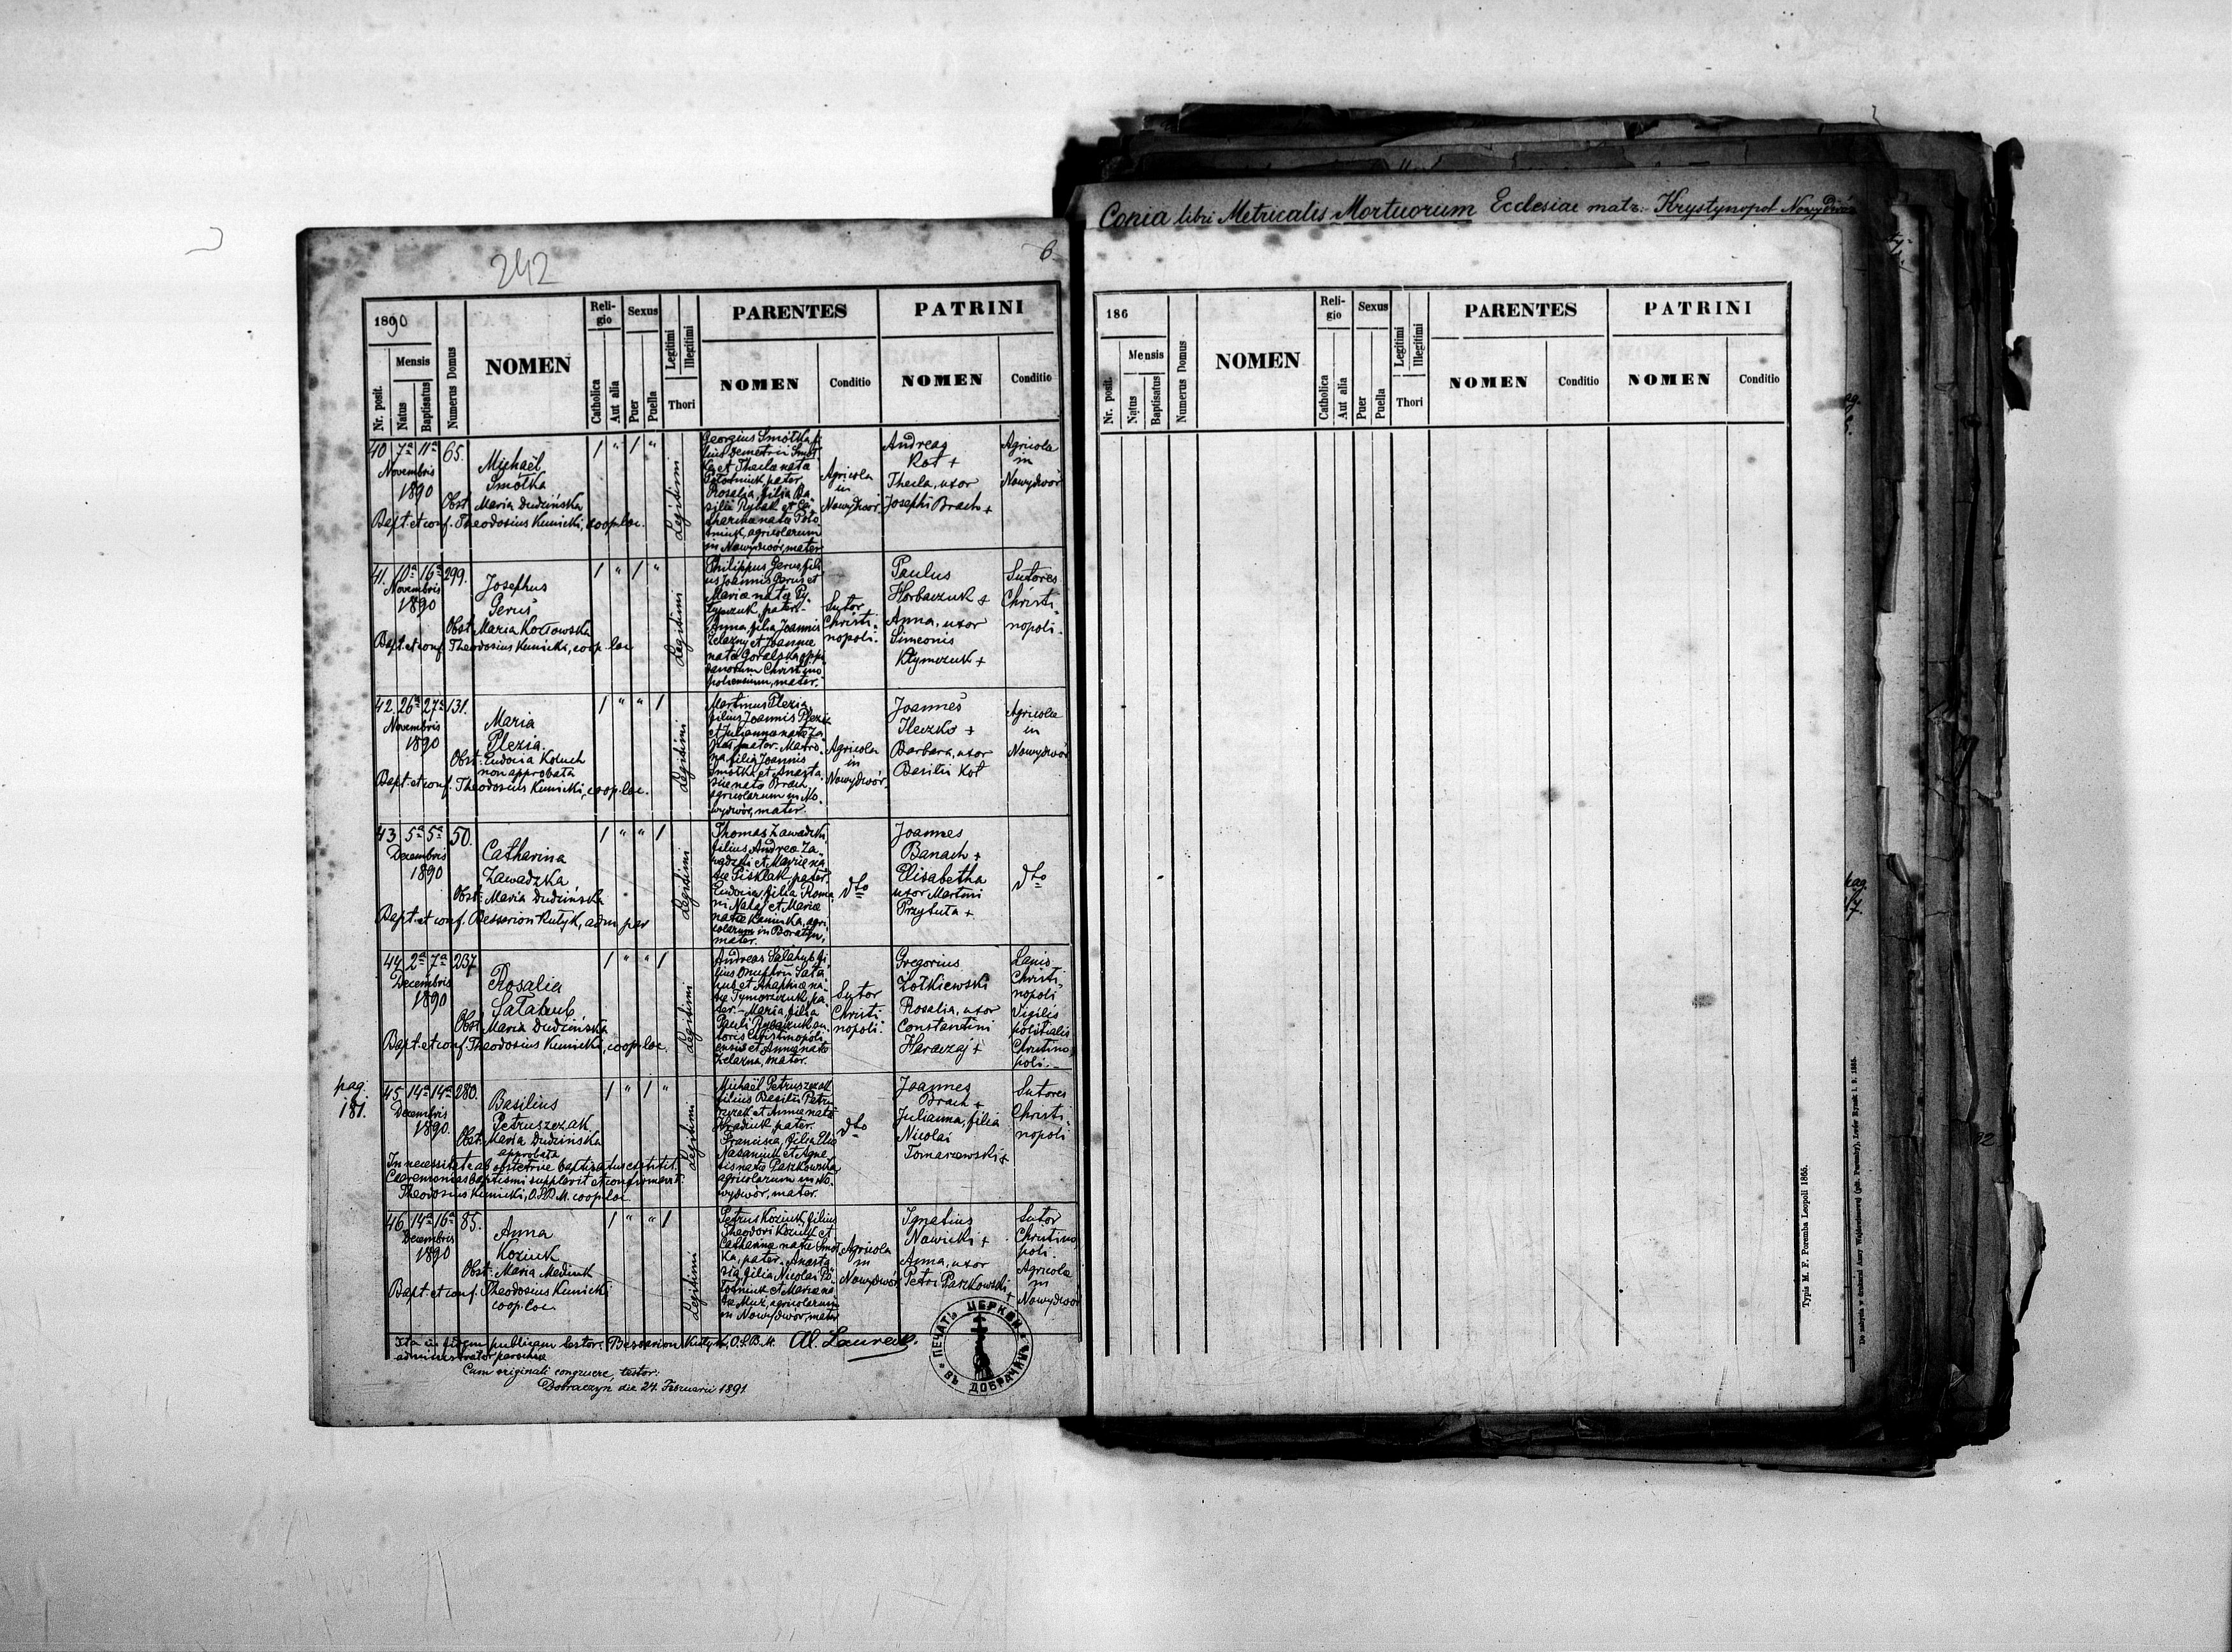 242
6
1890
Nr. posit.
Mensis
Natus
Baptisatus
Numerus Domus
NOMEN
Religio
Catholica
Aut alia
Sexus
Puer
Puella
Legitimi
Illegitimi
Thori
PARENTES
NOMEN
Conditio
PATRINI
NOMEN
Conditio
40 7a 11a 65.
Novembris
1890
Michaël
Smótka
Obst. Maria Dudzińska
Bapt. et conf. Theodosius Kunicki, coop. loc.
Legitimi
Georgius Smótka fi-
lius Demetrii Smót-
ka et Thecla nata
pater
Rosalia, filia Ba-
silii Rybak et Ca-
tharina nata Poto-
czniuk, agricolarum
in Nowydwór, mater
Agricola
in
Nowydwór
Andreas
Kot +
Thecla, uxor
Josephi Brach +
Agricola
in
Nowydwór
41. 10a 16a 299.
Novembris
1890
Josephus
Gerus
Obst. Maria Kozłowska
Bapt. et conf. Theodosius Kunicki, coop. loc
Legitimi
Philippus Gerus, fili-
us Joannis Gerus et
Maria nata
pater.-
Anna, filia Joannis
Żelazny et Joanna
nata Goralska oppi-
danorum Christino-
poliensium, mater.
Sutor
Christi-
nopoli.
Paulus
Horbaczuk +
Anna, uxor
Simeonis
Klymczuk +
Sutores
Christi-
nopoli.
42. 26a 27a 131.
Novembris
1890
Maria
Plezia.
Obst. Eudocia Kotuch
non approbata
Bapt. et conf. Theodosius Kunicki, coop. loc.
Legitimi
Martinus Plezia,
filius Joannis Plezia
et Julianna nata
pater. Matro-
na filia Joannis
Smótka et Anasta-
siae nata Brach,
agricolarum in No-
wydwór, mater.
Agricola
in
Nowydwór.
Joannes
Ileczko +
Barbara, uxor
Basilii Kot
Agricola
in
Nowydwór
43 5a 5a 50.
Decembris
1890
Catharina
Zawadzka
Obst. Maria Dudzińska
Bapt. et conf. Bessarion Kutyk, adm. par
Legitimi
Thomas Zawadzki
filius Andreæ Za-
wadzki et Mariæ na-
tæ pater.
Eudocia, filia Roma-
ni et Mariæ
natæ agri-
colarum in Boratyn,
mater.
dto
Joannes
Banach +
Elisabetha
uxor Martini
Przybuta +
dto
44 2a 7a 237
Decembris
1890
Rosalia
Sałahub
Obst. Maria Dudzińska
Bapt. et conf. Theodosius Kunicki, coop. loc.
Legitimi
Andreas Sałahub fi-
lius Onuphrii Sała-
hub et Agaphiæ na-
tæ pa-
ter.- Maria, filia
Pauli
toris Christinopoli-
ensis et Anna nata
Żelazna, mater.
Sutor
Christi
nopoli.
Gregorius
Żółkiewski
Rosalia, uxor
Constantini
Haraczaj +
Lanio
Christi-
nopoli
Vigilis
politialis
Christino
poli.-
pag.
181.
45. 14a 14a 280.
Decembris
1890.
Basilius
Petruszczak
Obst. Maria Dudzińska
approbata
In necessitate ab obstetrice baptisatus extitit.
Caeremonias baptismi supplevit et confirmavit:
Theodosius Kunicki, O.S.B.M. coop. loc
Legitimi
Michaël Petruszczak
filius Basilii Petru-
szczak et Anna nata
pater.
Francisca, filia Eliæ
Nasaniuk et Agne-
tis nata Paszkowska
agricolarum in No-
wydwór, mater.
dto
Joannes
Brach +
Julianna, filia
Nicolai
Tomaszewski +
Sutores
Christi
nopoli
46. 14a 16a 85.
Decembris
1890
Anna
Koziuk
Obst. Maria Mediuch
Bapt. et conf. Theodosius Kunicki
coop. loc
Legitimi
Petrus Koziuk, filius
Theodori Koziuk et
Catharina nata Smót-
ka, pater. Anasta-
sia, filia Nicolai Po-
toczniuk et Mariæ na-
tæ Muż, agricolarum
in Nowydwór, mater
Agricola
in
Nowydwór
Ignatius
Nawicki +
Anna, uxor
Petri Paszkowski
+
Sutor
Christino
poli.
Agricola
in
Nowydwór
Ita in fidem publicam testor. Bessarion Kutyk, O.S.B.M.
administrator parochiæ
Cum originali congruere, testor.
Dobraczyn die 24. Februarii 1891
ПЕЧАТЬ ЦЕРКВИ ВЪ ДОБРАЧИНѢ
Copia libri Metricalis Mortuorum Ecclesiae matr. Krystynopol Nowydwór
186
Nr. posit.
Mensis
Natus
Baptisatus
Numerus Domus
NOMEN
Religio
Catholica
Aut alia
Sexus
Puer
Puella
Legitimi
Illegitimi
Thori
PARENTES
NOMEN
Conditio
PATRINI
NOMEN
Conditio
Typis M. F. Poremba Leopoli 1865.